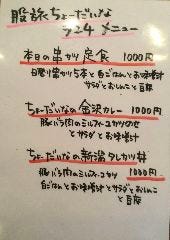 股旅ちょーだいな
724 メニュー
本日の串かつ定食 1000円
日替り串かつ5本と白ごはんとお味噌汁
とサラダとおしんこと豆腐
ちょーだいなの金沢カレー 1000円
豚バラ肉のミルフィーユかつのせ
とサラダとお味噌汁
ちょーだいなの新潟タレかつ丼
豚バラ肉のミルフィーユかつ 1000円
白ごはんとお味噌汁とサラダとおしんこ
と豆腐